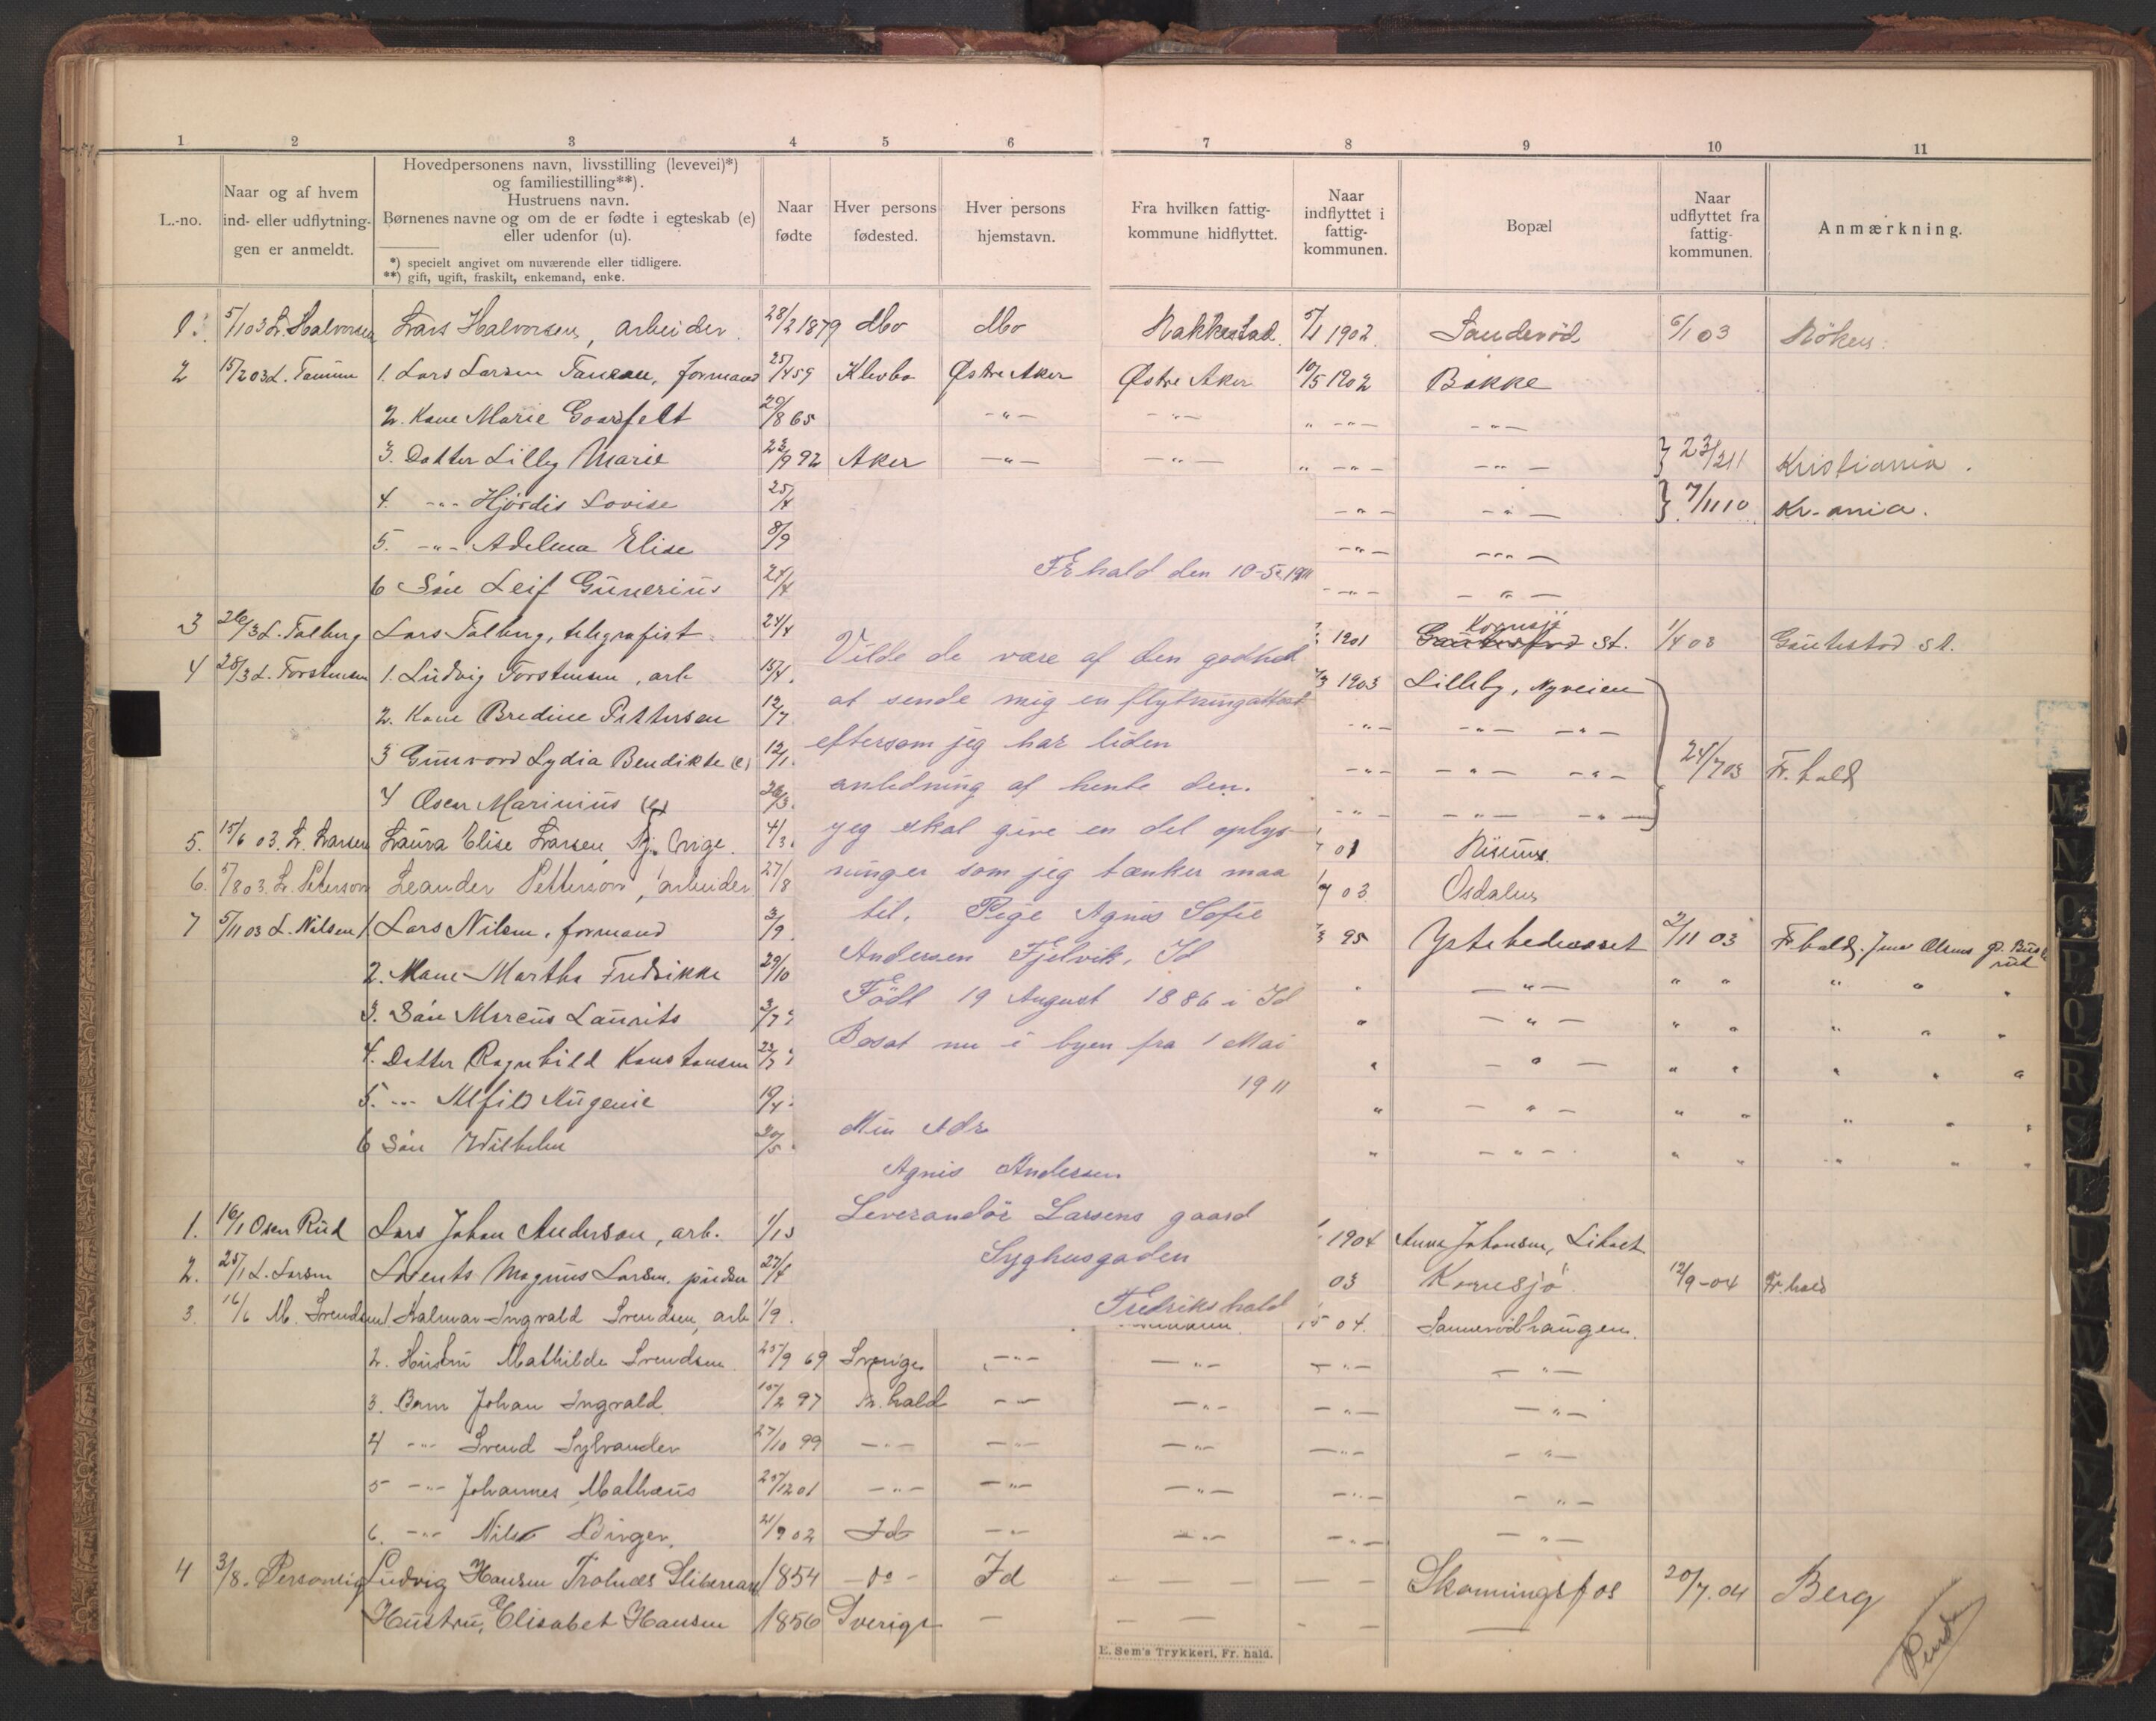 1 2 3 4 5 6 7 8 9 10 11
L.-no.
Naar og af hvem
ind- eller udflytnin-
gen er anmeldt.
Hovedpersonens navn, livsstilling (levevei)*)
og familiestilling**).
Hustruens navn.
Børnenes navne og om de er fødte i egteskab (e)
eller udenfor (u).
*) specielt angivet om nuværende eller tidligere.
**) gift, ugift, fraskilt, enkemand, enke.
Naar
fødte
Hver persons
fødested.
Hver persons
hjemstavn.
Fra hvilken fattig-
kommune hidflyttet.
Naar
indflyttet i
fattig-
kommunen.
Bopæl
Naar
udflyttet fra
fattig-
kommunen.
Anmærkning.
1. 5/1 03 L. Halvorsen Lars Halvorsen, arbeider. 28/2 1879 Mo Mo Rakkestad 5/1 1902 Sanderød 6/1 03 Röken
2 15/2 03 L. 1. Lars Larsen formand 25/4 59 Østre Aker Østre Aker 10/5 1902 Bakke
2. Kone Marie 20/8 65 -"- -"- " -"- -"-
3. Datter Lilly Marie 23/9 92 Aker -"- -"- " -"- -"- } 23/2 11 Kristiania.
4. -"- Hjördis Lovise 25/4 -"- -"- } 7/11 10 Kr-ania.
5. -"- Adelma Elise 8/9 -"- -"-
6 Sön Leif Gunerius 24/4 -"- -"-
3 26/3 L. Talberg Lars Talberg, telegrafist 24/4 1901 Kornsjö St. 1/4 03 st.
4 28/3 L. Torstensen 1. Ludvig Torstensen, arb 15/4 1903 Lilleby, Nyveien
2. Kone Bredine Pettersen 12/7 -"- -"- -"-
3 Gunvord Lydia Bendikte (e) 12/1 -"- -"- -"- 24/7 03 Fr. hald
4 Oscar Marinius (e) 26/3 -"- -"- -"-
5. 15/6 03. L. Larsen Laura Elise Larsen 4/3 01 Risum
6. 5/8 03. L. Peterson Leander Petterson, arbeider 27/8 03 Osdalen
7 5/11 03 L. Nilsen 1. Lars Nilsen, formand 3/9 95 2/11 03 Fr hald.
2. Kone Martha Fredrikke 29/10 " -"- " " " " "
3. Sön Marcus Laurits 3/7 " -"- " " " " "
4. Datter Ragnhild Konstanse 23/7 " -"- " " " " "
5. -"- 19/4 " -"- " " " " "
6 Sön Wilhelm 20/5 " -"- " " " " "
1. 16/1 Oscar Rud Lars Johan Anderson, arb. 1904 Anne Johansen,
2. 25/1 L. Larsen Lorents Magnus Larsen, pudser 27/4 03 Kornsjö 12/9-04 Fr. hald
3. 16/6 M. Svendsen 1. Halmar Ingvald Svendsen, arb 1/9 04. Sannerödhaugen.
2. Hustru Mathilde Svendsen 25/9 69 Sverige -"- -"- -"- -"-
3. Barn Johan Ingvald. 15/2 97 Fr. hald -"- -"- -"- -"-
4 -"- Svend Sylvander 27/10 99 -"- -"- -"- -"- -"-
5 -"- Johannes Mathæus 25/12 01 -"- -"- -"- -"- -"-
6. -"- Nils 21/9 02 Id -"- -"- -"- -"-
4 3/8. Personlig Ludvig Hansen 1854 - do - Id — — — — Skonningsfos 20/7. 04 Berg
Hustru, Elisabet Hansen 1856 Sverige — — — - - —
E. Sem's Trykkeri, Fr. hald.
Frhald den 10-5-1911
Vilde de være af den godhed
at sende mig en flytningattest
eftersom jeg har liden
anledning af hente den.
jeg skal give en del oplys-
ninger som jeg tænker maa
til. Pige Agnes Sofie
Andersen Fjelvik, Id
Född 19 August 1886 i Id
Bosat nu i byen fra 1 Mai
1911
Min Adr
Agnes Andersen
Leverandör Larsens gaard
Syghusgaden
Fredrikshald
M N O P Q R S T U V W